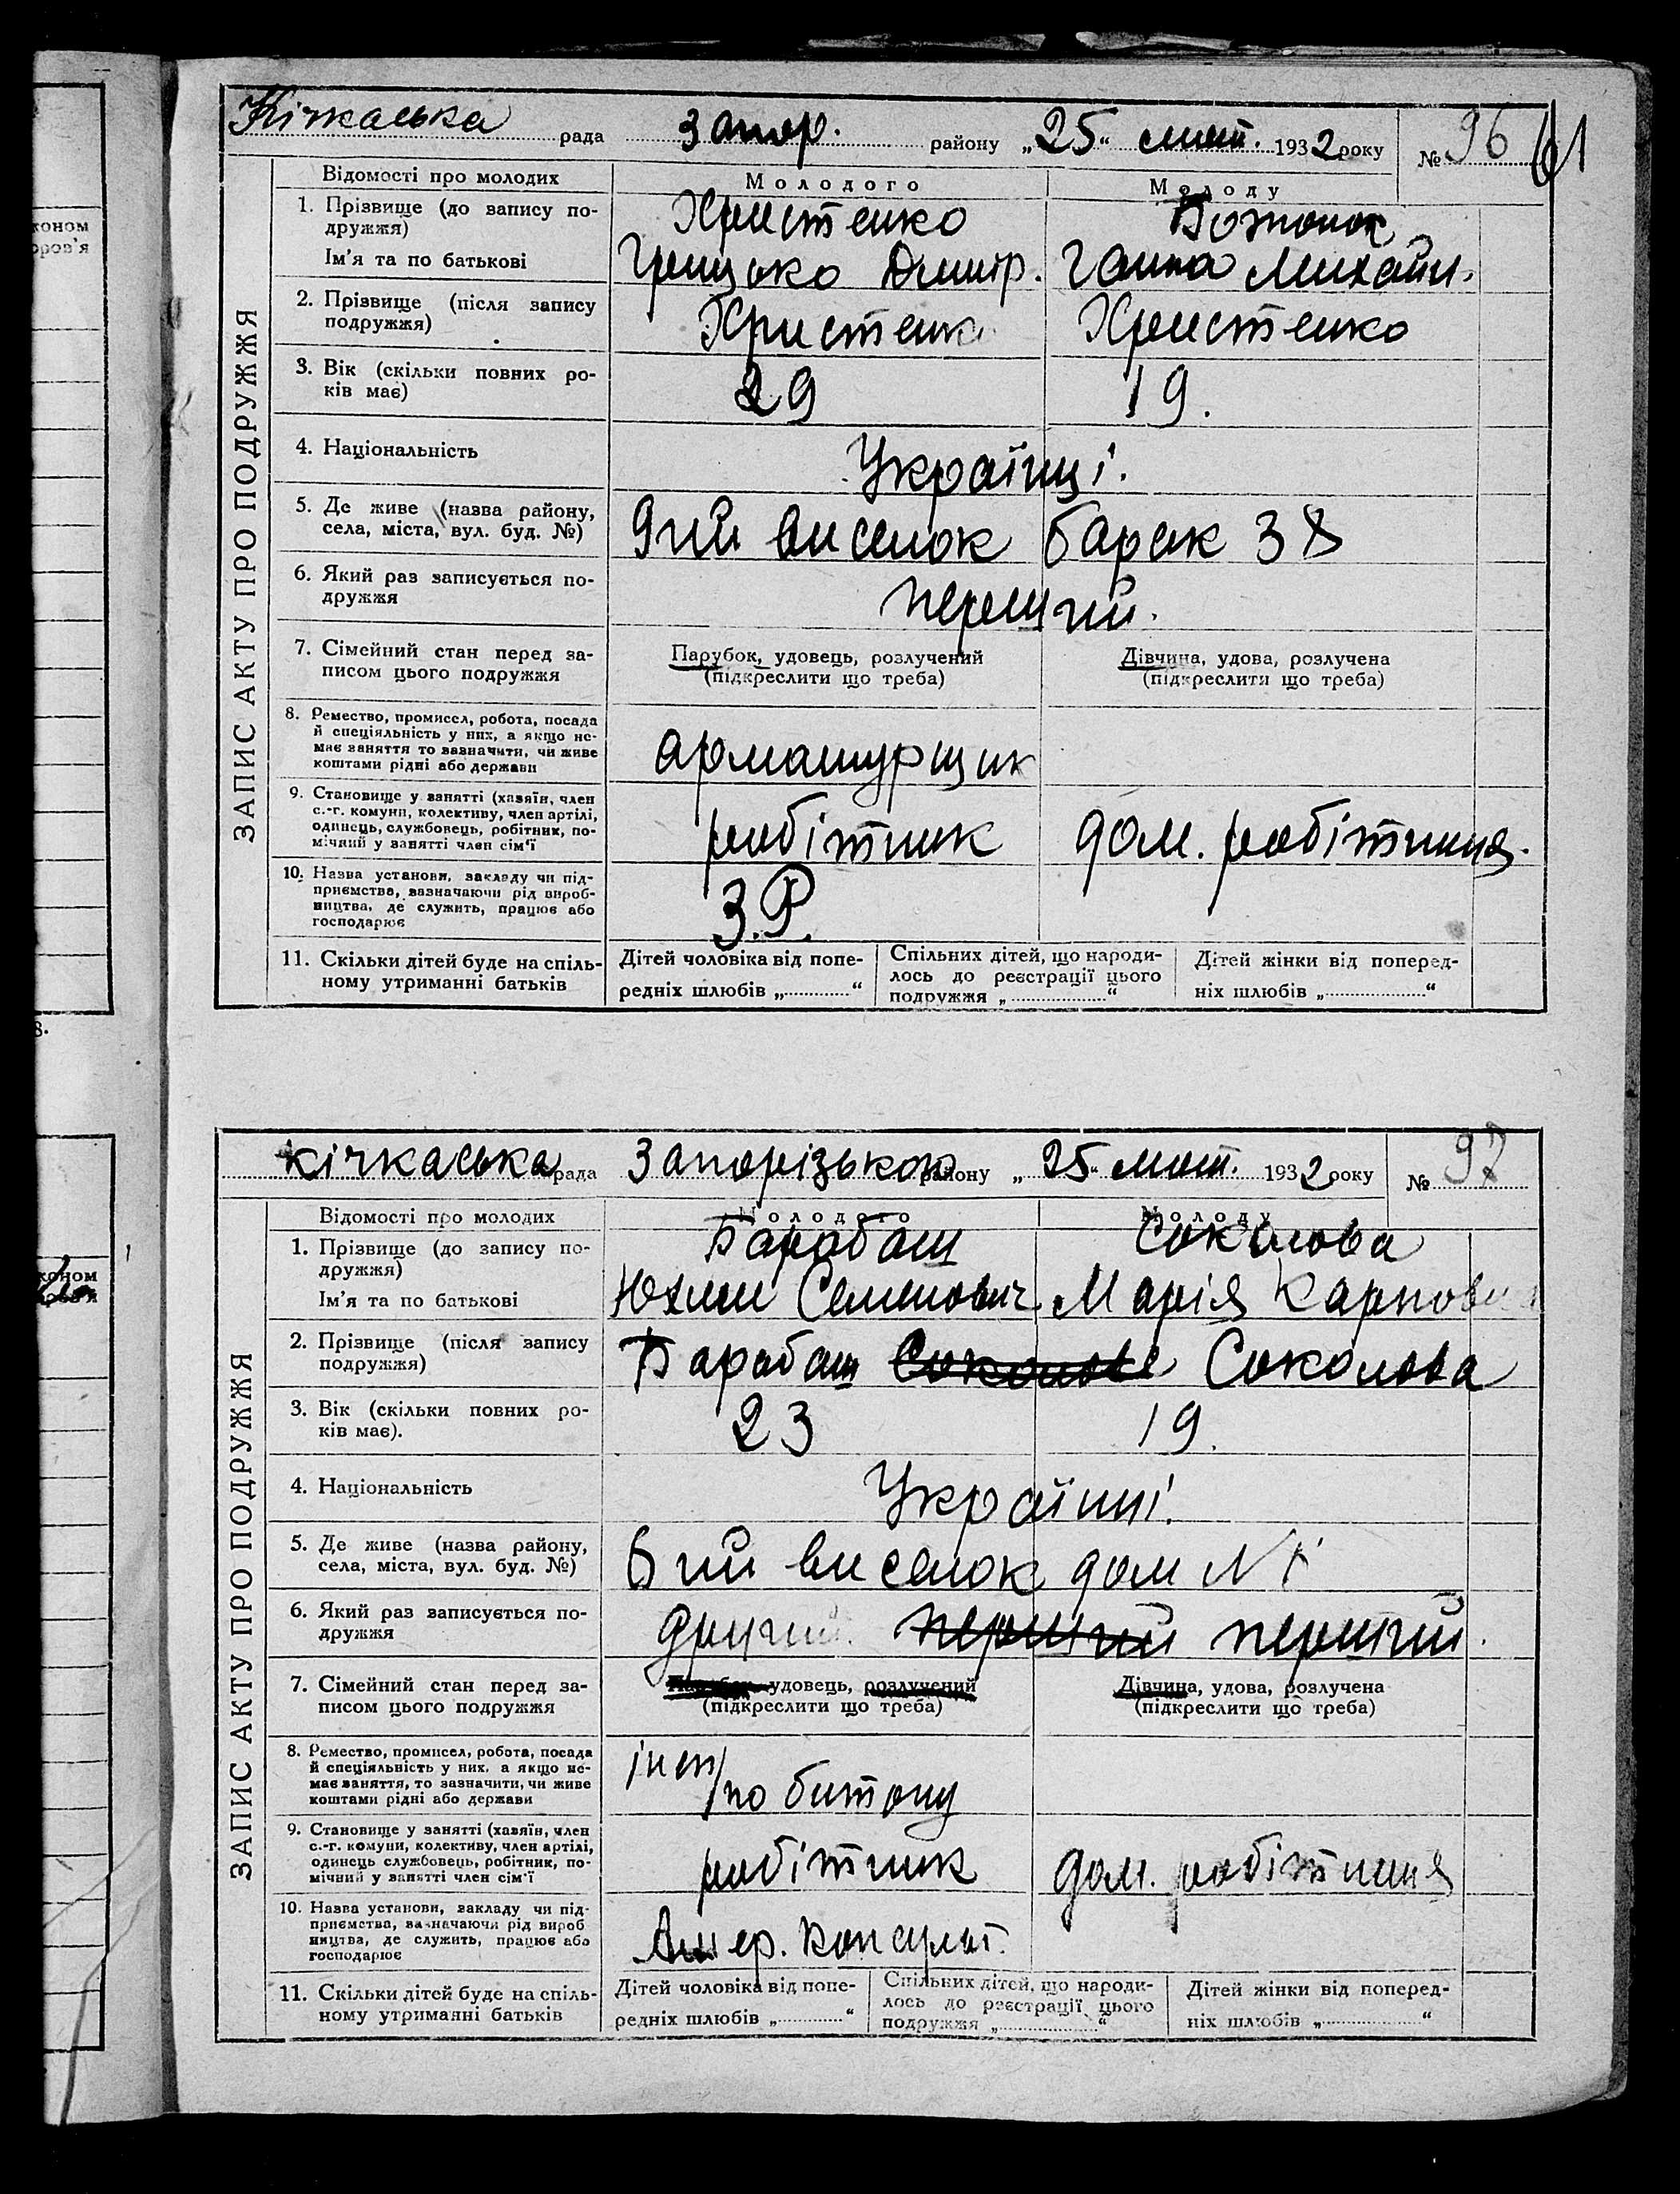 Кічкаська рада Запор. району „25“ лют. 1932 року № 96 61
ЗАПИС АКТУ ПРО ПОДРУЖЖЯ
Відомості про молодих Молодого Молоду
1. Прізвище (до запису по- Христенко
дружжя)
Ім'я та по батькові Грицько Дмитр. Ганна Михайл.
2. Прізвище (після запису Христенко Христенко
подружжя)
3. Вік (скільки повних ро- 29 19.
ків має)
4. Національність Українці.
5. Де живе (назва району, 9ий виселок барак 38
села, міста, вул. буд. №)
6. Який раз записується по- перший.
дружжя
7. Сімейний стан перед за- Парубок, удовець, розлучений Дівчина, удова, розлучена
писом цього подружжя (підкреслити що треба) (підкреслити що треба)
8. Ремество, промисел, робота, посада
й спеціяльність у них, а якщо не-
має заняття то зазначити, чи живе арматурщик
коштами рідні або держави
9. Становище у занятті (хазяїн, член
с.-г. комуни, колективу, член артілі,
одинець, службовець, робітник, по- робітник дом. робітниця.
мічний у занятті член сім'ї
10. Назва установи, закладу чи під-
приємства, зазначаючи рід вироб- З.Р.
ництва, де служить, працює або
господарює
11. Скільки дітей буде на спіль- Дітей чоловіка від попе- Спільних дітей, що народи- Дітей жінки від поперед-
ному утриманні батьків редніх шлюбів „ “ лось до реєстрації цього ніх шлюбів „ “
подружжя „ “
кічкаська рада Запорізького району „25“ лют. 1932 року № 97
ЗАПИС АКТУ ПРО ПОДРУЖЖЯ
Відомості про молодих Молодого Молоду
1. Прізвище (до запису по- Барабаш Соколова
дружжя)
Ім'я та по батькові Юхим Семенович Марія Карповна
2. Прізвище (після запису Барабаш Соколова Соколова
подружжя)
3. Вік (скільки повних ро- 23 19.
ків має).
4. Національність Українці.
5. Де живе (назва району, 6ий виселок дом №
села, міста, вул. буд. №)
6. Який раз записується по- другий. перший перший.
дружжя
7. Сімейний стан перед за- Парубок, удовець, розлучений Дівчина, удова, розлучена
писом цього подружжя (підкреслити що треба) (підкреслити що треба)
8. Ремество, промисел, робота, посада
й спеціяльність у них, а якщо не-
має заняття, то зазначити, чи живе по битону
коштами рідні або держави
9. Становище у занятті (хазяїн, член
с.-г. комуни, колективу, член артілі,
одинець службовець, робітник, по- робітник дом. робітниця
мічний у занятті член сім'ї
10. Назва установи, закладу чи під-
приємства, зазначаючи рід вироб
ництва, де служить, працює або Амер. консульт.
господарює
11. Скільки дітей буде на спіль- Дітей чоловіка від попе- Спільних дітей, що народи- Дітей жінки від поперед-
ному утриманні батьків редніх шлюбів „ “ лось до реєстрації цього ніх шлюбів „ “
подружжя „ “